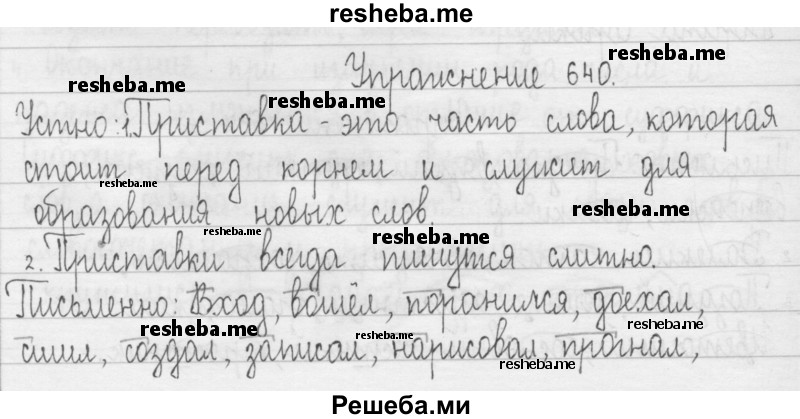 resheba.me
resheba.me
resheba.me
Упражнение 640.
Устно: 1. Приставка - это часть слова, которая
resheba.me
стоит перед корнем и служит для
resheba.me
resheba.me
образования новых слов.
resheba.me
resheba.me
2. Приставки всегда пишутся слитно.
Письменно: Вход, вошёл, поранился, доехал,
resheba.me
resheba.me
resheba.me
сшил, создал, записал, нарисовал, прогнал,
resheba.me
Решеба.ми